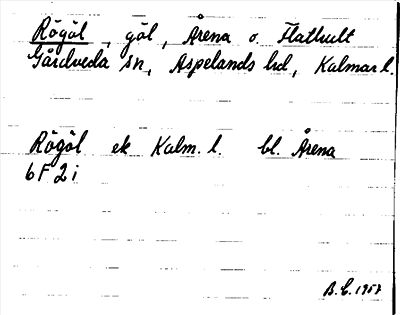 Rögöl, göl, Årena o. Flathult
Gårdveda sn, Aspelands hd, Kalmar l.
Rögöl ek Kalm. l. bl. Årena
6F2i
B.C. 1957